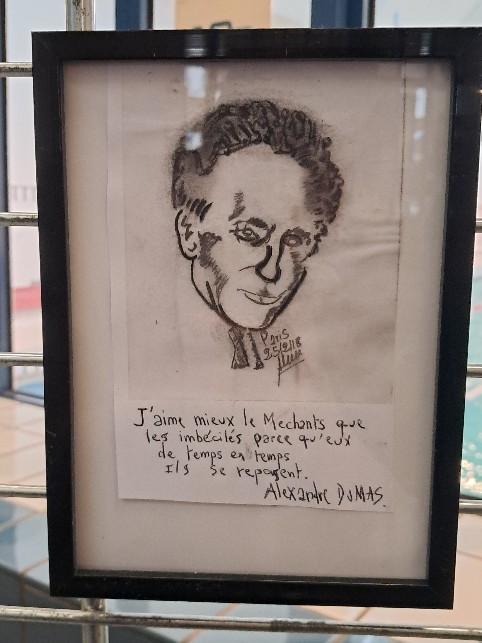 Paris
25/2/18
J'aime mieux le Mechants que
les imbécilés parce qu'eux
de temps en temps
Ils se reposent.
Alexandre DUMAS.